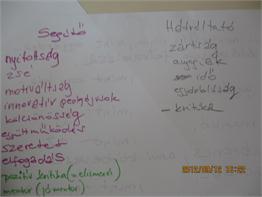 Segítő
nyitottság
zse
motiváltság
innovatív pedagógusok
kölcsönösség
együttműködés
szeretet
elfogadás
pozitív kritika (elismerő)
mentor (jó mentor)
Hátráltató
zártság
anyagiak
idő
egyoldalúság
kritika